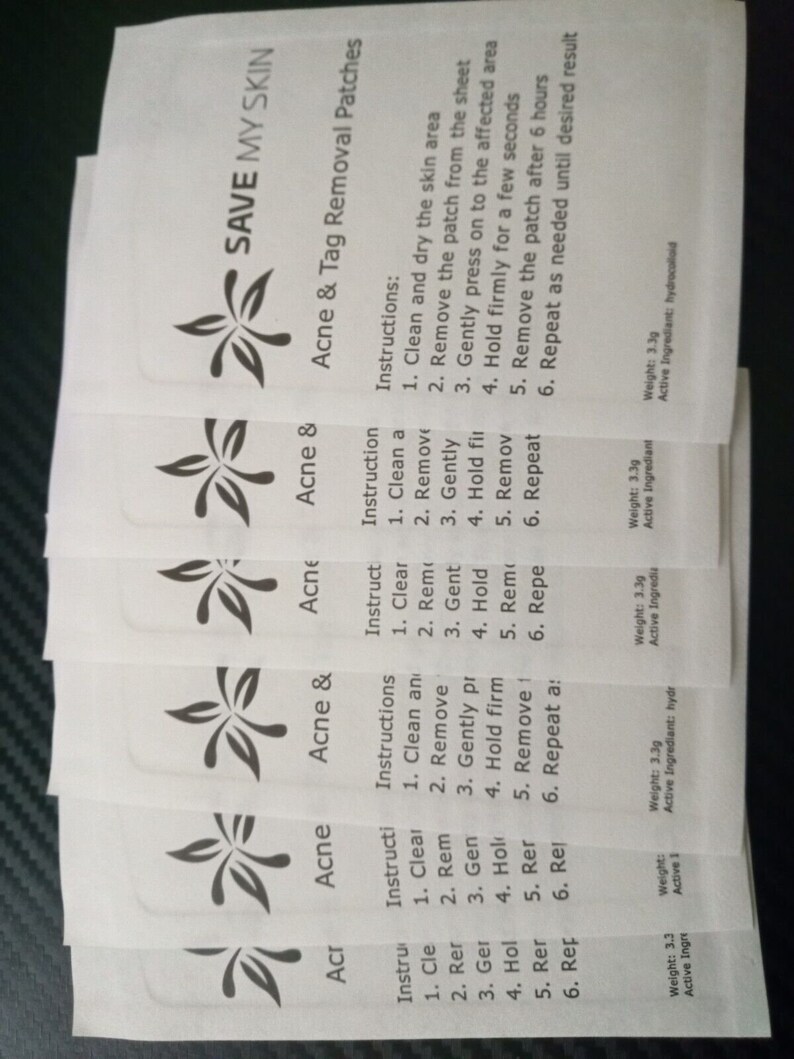 SAVE MY SKIN
Acne & Tag Removal Patches
Instructions:
1. Clean and dry the skin area
2. Remove the patch from the sheet
3. Gently press on to the affected area
4. Hold firmly for a few seconds
5. Remove the patch after 6 hours
6. Repeat as needed until desired result
Weight: 3.3g
Active Ingrediant: hydrocolloid
Acne &
Instruction
1. Clean a
2. Remove
3. Gently
4. Hold fir
5. Remov
6. Repeat
Weight: 3.3g
Active Ingrediant
Acne
Instruct
1. Clear
2. Remo
3. Gent
4. Hold
5. Remo
6. Repe
Weight: 3.3g
Active Ingredia
Acne &
Instructions
1. Clean and
2. Remove
3. Gently pr
4. Hold firm
5. Remove t
6. Repeat as
Weight: 3.3g
Active Ingrediant: hydr
Acne
Instructi
1. Clear
2. Rem
3. Gen
4. Hol
5. Rer
6. Rep
Weight:
Active I
Acr
Instru
1. Cle
2. Rer
3. Ger
4. Hol
5. Rer
6. Rep
Weight: 3.3
Active Ingre